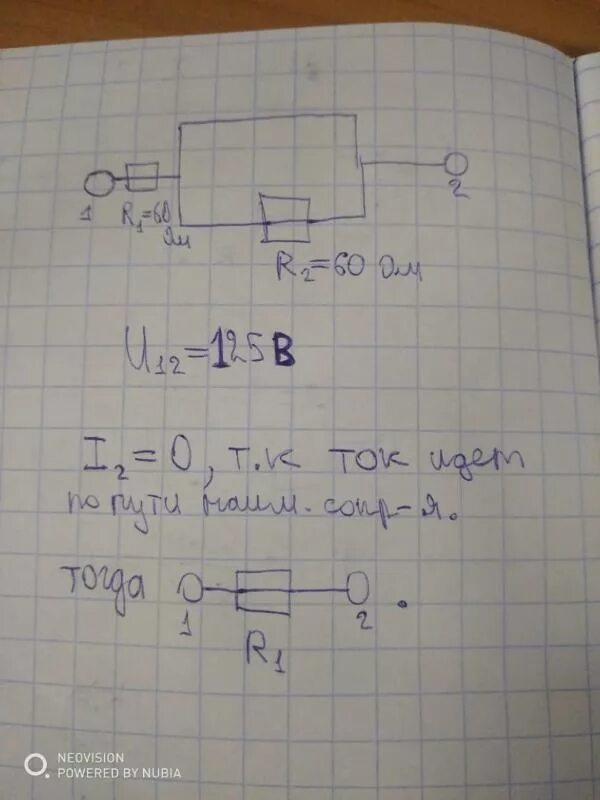 1
R₁=60
Ом
2
R₂=60 Ом
U₁₂=125В
I₂=0, т.к ток идет
по пути наим. сопр-я.
тогда
1
2
.
R₁
NEOVISION
POWERED BY NUBIA